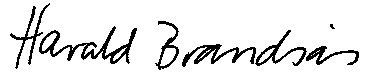 Harald Brandsås